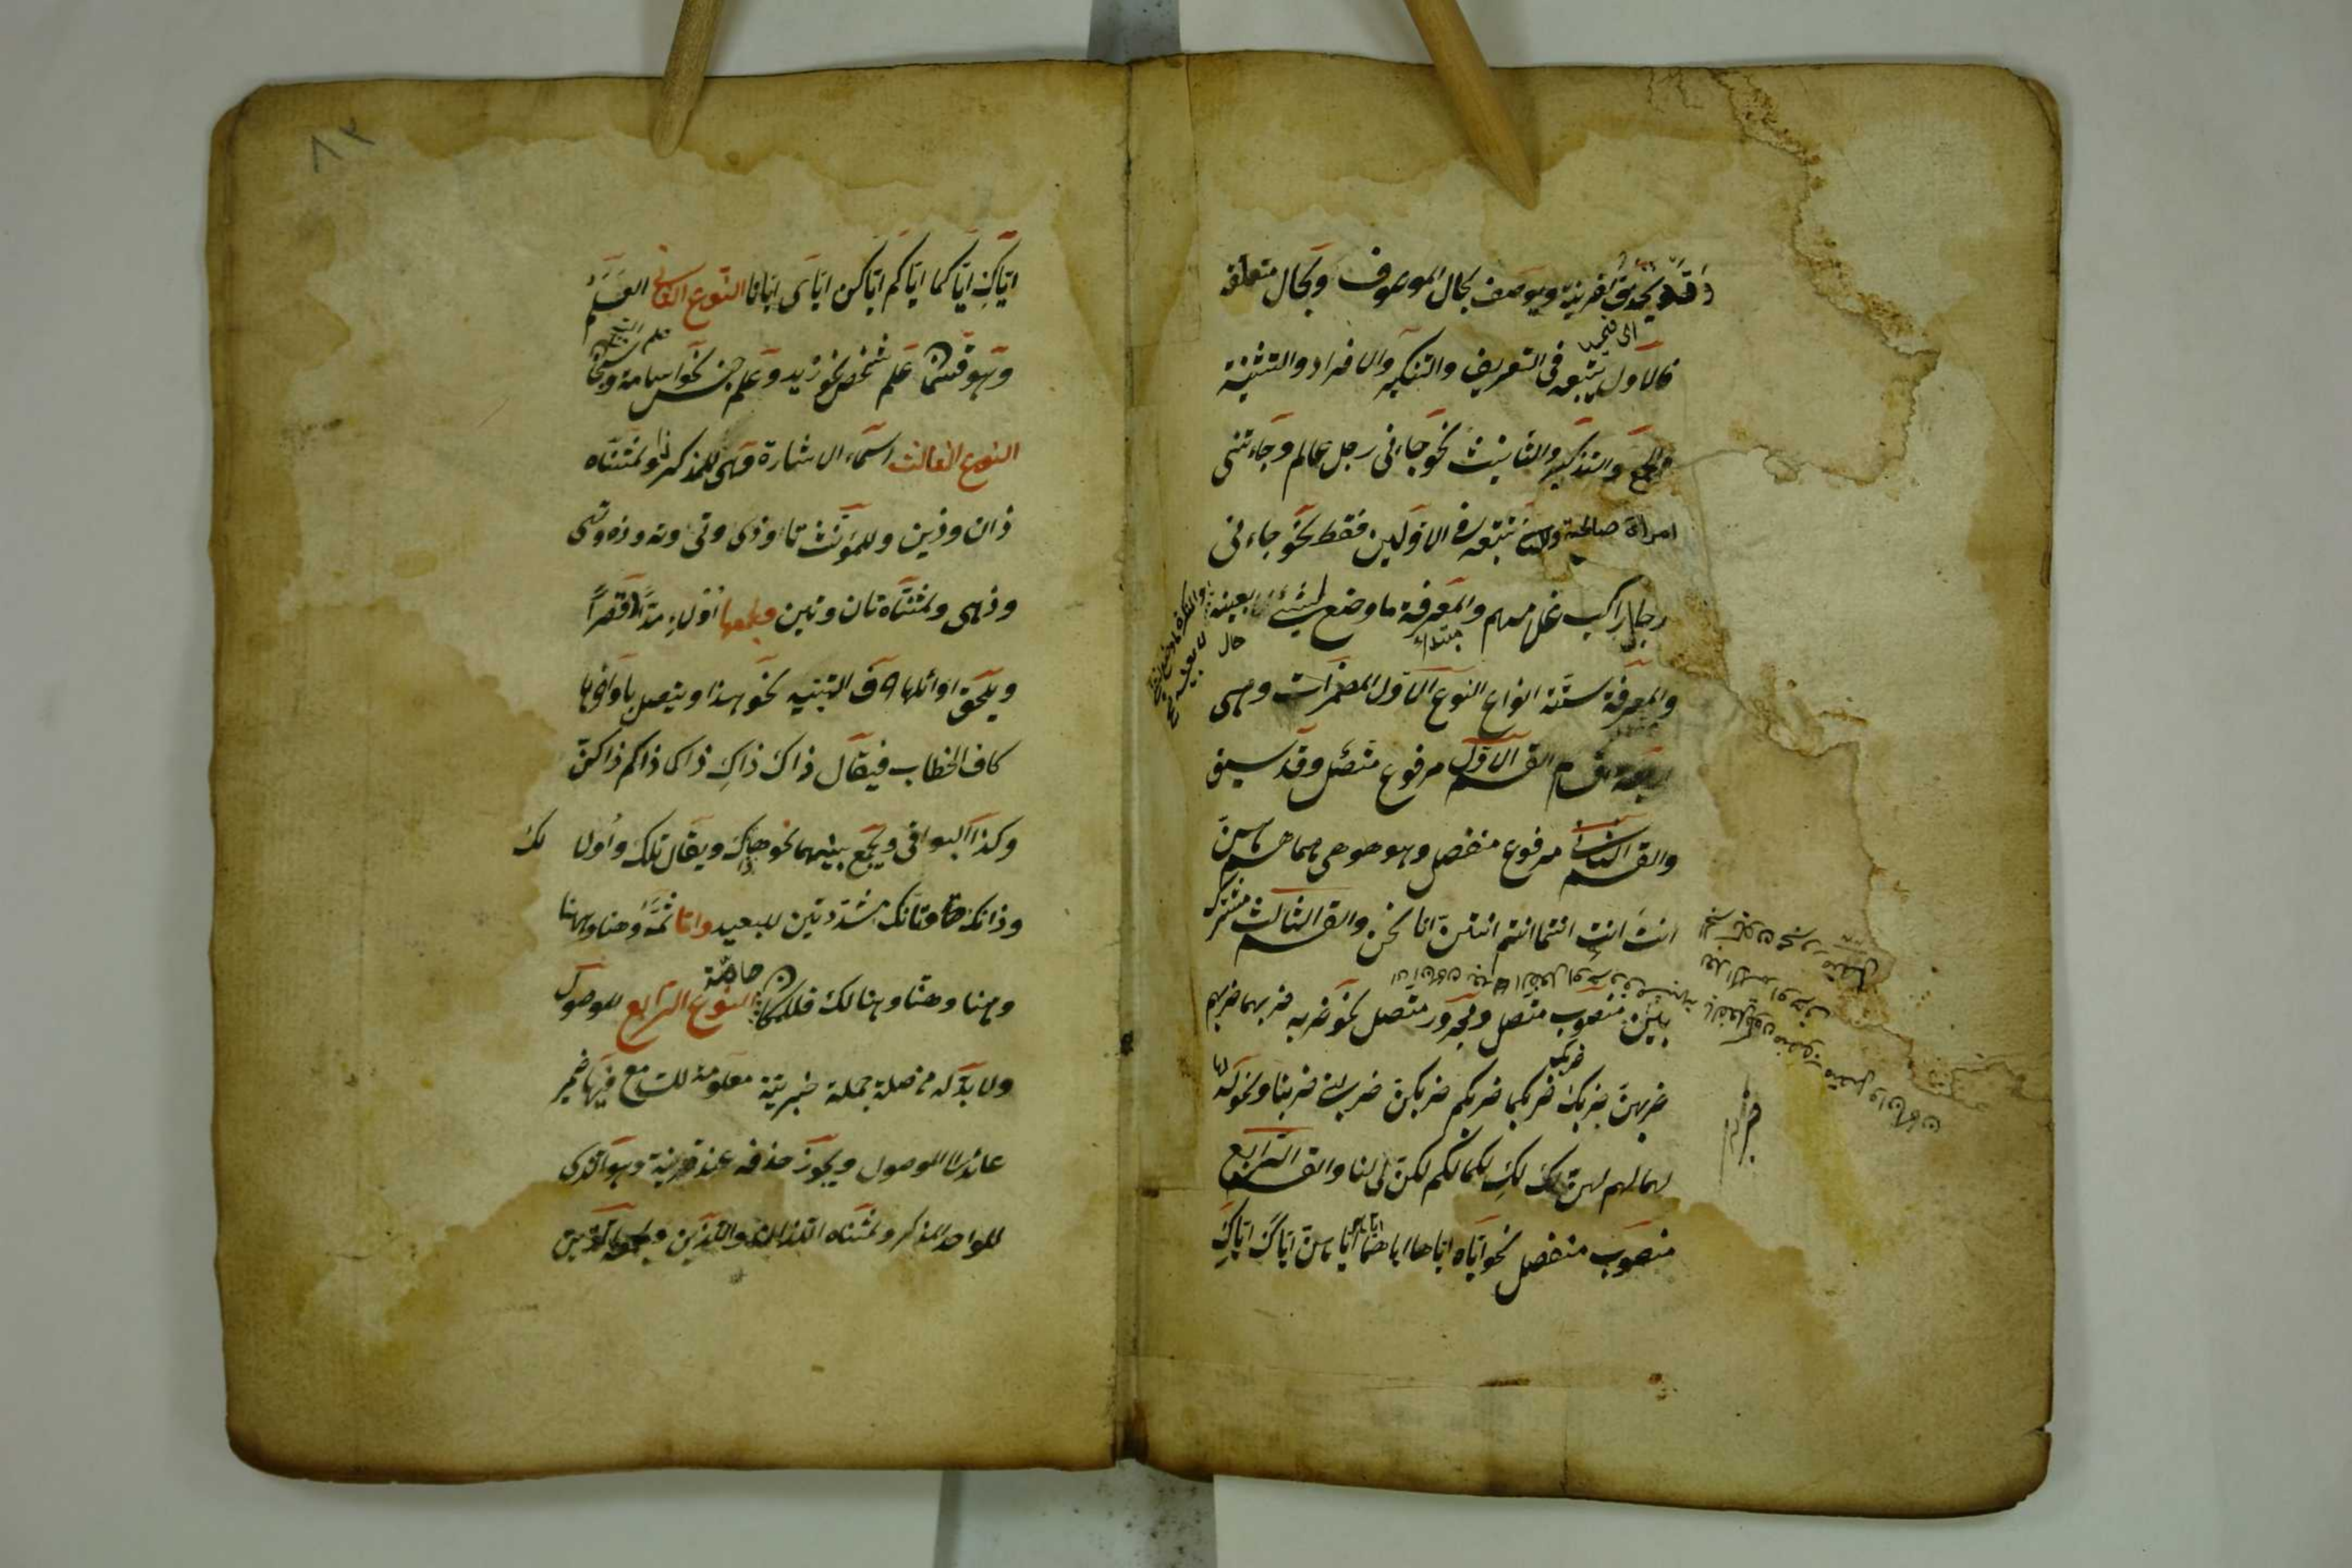 وقد يحذف لقرينة ويوصف بحال الموصوف وبحال متعلقه
فالاول يتبعه فى التعريف والتنكير والافراد والتثنية
والجمع والتذكير والتأنيث نحو جاءنى رجل عالم وجاءتنى
امراة صالحة والثانى يتبعه فى الاولين فقط نحو جاءنى
رجل راكب غلامهم والمعرفة ما وضع لشىء بعينه
مبتداء
حال
والمعرفة ستة انواع النوع الاول المضمرات وهى
اربعة اقسام القسم الاول مرفوع متصل وقد سبق
والقسم الثانى مرفوع منفصل وهو هو هى هما هم هن
انتَ انتِ انتما انتم انتن انا نحن والقسم الثالث مشترك
بين منصوب متصل ومجرور متصل نحو ضربه ضربهما ضربهم
ضربهن ضربك ضربكما ضربكم ضربكن ضربنى ضربنا ونحو له
لهما لهم لهن لكَ لكِ لكما لكم لكن لى لنا والقسم الرابع
منصوب منفصل نحو اياه اياها اياهما اياهم اياهن اياكَ اياكِ
٨٢
اياكِ اياكما اياكم اياكن اياى ايانا النوع الثانى العلم
وهو قسمان علم شخص نحو زيد وعلم جنس نحو اسامة و
النوع الثالث اسماء الاشارة وهى للمذكر ذا ولمثناه
ذان وذين وللمؤنث تا وذى وتى وته وذه وتهى
وذهى ولمثناه تان وتين ولجمعها اولاء مدًّا وقصرًا
ويلحق اوائلها حرف التنبيه نحو هذا ويتصل باواخرها
كاف الخطاب فيقال ذاكَ ذاكِ ذاكما ذاكم ذاكن
وكذا البواقى ويجمع بينهما نحو هذاك ويقال تلك واولا لك
وذانك وتانك مشددتين للبعيد واما ثمّ وهنا وههنا
وهنا وهنا وهنالك فللمكان خاصة النوع الرابع الموصول
ولابد له من صلة جملة خبرية معلومة للسامع فيها ضمير
عائد الى الموصول ويجوز حذفه عند قرينة وهو الذى
للواحد المذكر ولمثناه اللذان واللذين ولجمعه الذين